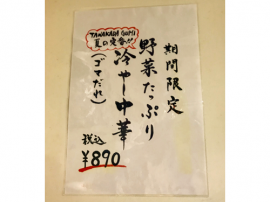 期間限定
野菜たっぷり
冷やし中華
(ゴマだれ)
TANAKADA GOMI
夏の定番!!
税込
¥890